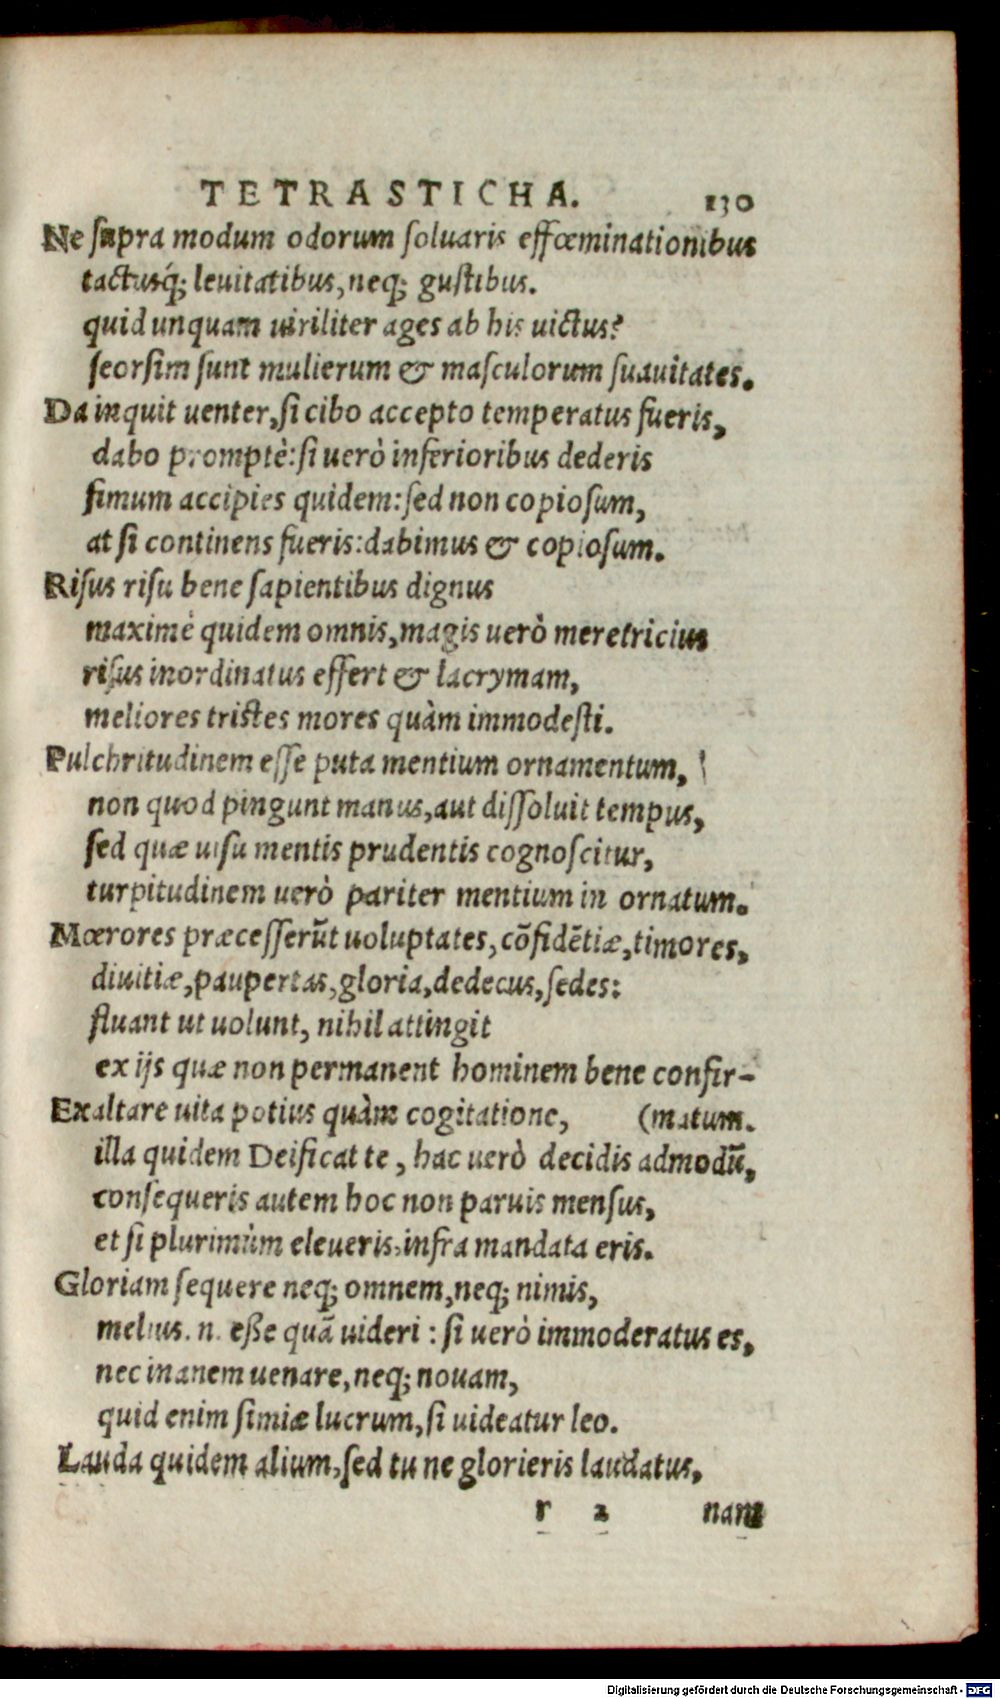 TETRASTICHA. 130
Ne supra modum odorum soluaris effœminationibus
tactusq́; leuitatibus, neq; gustibus.
quid unquam uiriliter ages ab his uictus?
seorsim sunt mulierum & masculorum suauitates.
Da inquit uenter, si cibo accepto temperatus fueris,
dabo promptè: si uerò inferioribus dederis
fimum accipies quidem: sed non copiosum,
at si continens fueris: dabimus & copiosum.
Risus risu bene sapientibus dignus
maximè quidem omnis, magis uerò meretricius
risus inordinatus effert & lacrymam,
meliores tristes mores quàm immodesti.
Pulchritudinem esse puta mentium ornamentum,
non quod pingunt manus, aut dissoluit tempus,
sed quæ uisu mentis prudentis cognoscitur,
turpitudinem uerò pariter mentium in ornatum.
Mœrores præcesserūt uoluptates, cōfidētiæ, timores,
diuitiæ, paupertas, gloria, dedecus, sedes:
fluant ut uolunt, nihil attingit
ex ijs quæ non permanent hominem bene confir-
Exaltare uita potius quàm cogitatione, (matum.
illa quidem Deificat te, hac uerò decidis admodū,
consequeris autem hoc non paruis mensus,
et si plurimùm eleueris, infra mandata eris.
Gloriam sequere neq; omnem, neq; nimis,
melius .n. eße quā uideri: si uerò immoderatus es,
nec inanem uenare, neq; nouam,
quid enim simiæ lucrum, si uideatur leo.
Lauda quidem alium, sed tu ne glorieris laudatus,
r 2 nam
Digitalisierung gefördert durch die Deutsche Forschungsgemeinschaft - DFG